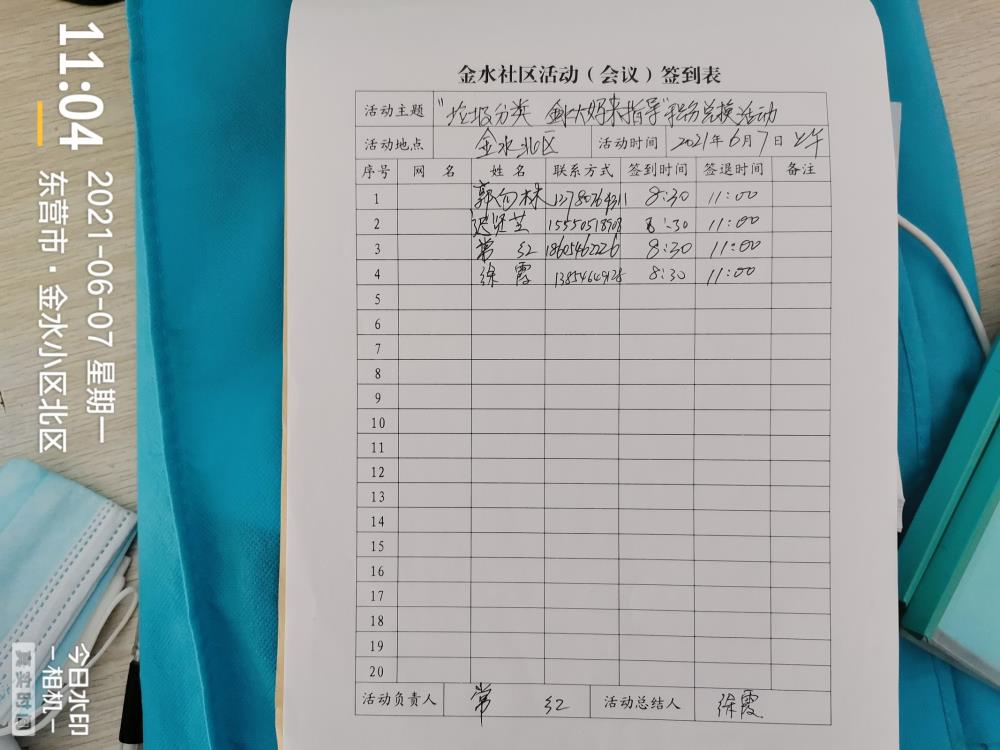 金水社区活动（会议）签到表
活动主题 "垃圾分类 金水大妈来指导"积分兑换活动
活动地点 金水北区 活动时间 2021年6月7日上午
序号 网 名 姓 名 联系方式 签到时间 签退时间 备注
1 8:30 11:00
2 15550518908 8:30 11:00
3 常 红 18605462226 8:30 11:00
4 徐 霞 13854649128 8:30 11:00
5
6
7
8
9
10
11
12
13
14
15
16
17
18
19
20
活动负责人 常 红 活动总结人 徐霞
11:04
2021-06-07 星期一
东营市·金水小区北区
今日水印
相机
真实时间